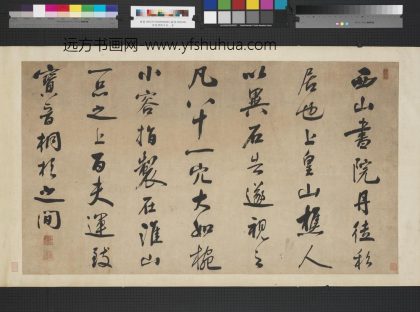 远方书画网 www.yfshuhua.com
西山書院丹徒私
居也上皇山樵人
以異石告遂視之
凡八十一穴大如椀
小容指製在淮山
一品之上百夫運致
寶晉桐杉之間